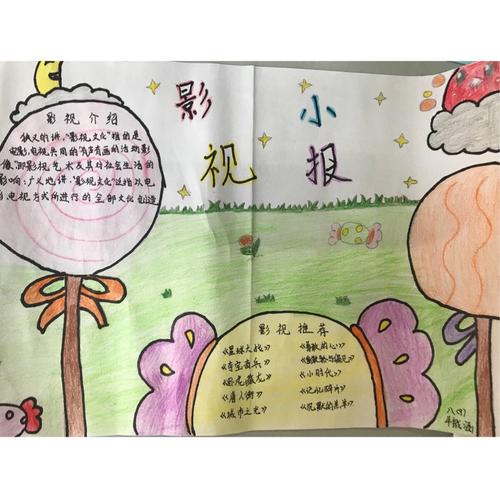 影 小
视 报
影视介绍
狭义的讲,"影视文化"指的是
电影,电视共同的"有声有画的活动影
像,"即影视艺术及其对社会生活的
影响;广义地讲,"影视文化"泛指以电
影,电视方式所进行的全部文化创造
影视推荐
《星球大战》 《勇敢的心》
《夺宝奇兵》 《傲慢与偏见》
《卧虎藏龙》 《小时代》
《唐人街》 《记忆碎片》
《城市之光》 《沉默的羔羊》